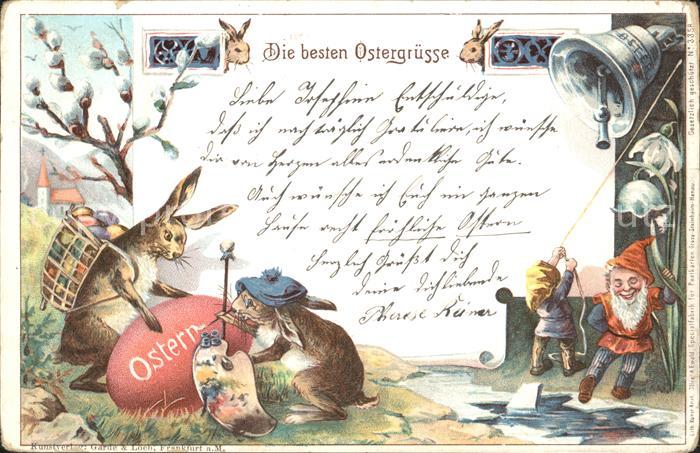 Die besten Ostergrüsse
Liebe Josephine Entschuldige,
daß ich nachträglich Gratuliere, ich wünsche
Dir von Herzen alles erdenkliche Gute.
Auch wünsche ich Euch im ganzen
Hause recht fröhliche Ostern
Herzlich Grüßt Dich
deine Dichliebende
Therese
Ostern
Kunstverlag: Garde & Loeb, Frankfurt a.M.
Gesetzlich geschützt No 3358
Specialfabrik für Postkarten Gross-Steinheim-Hanau